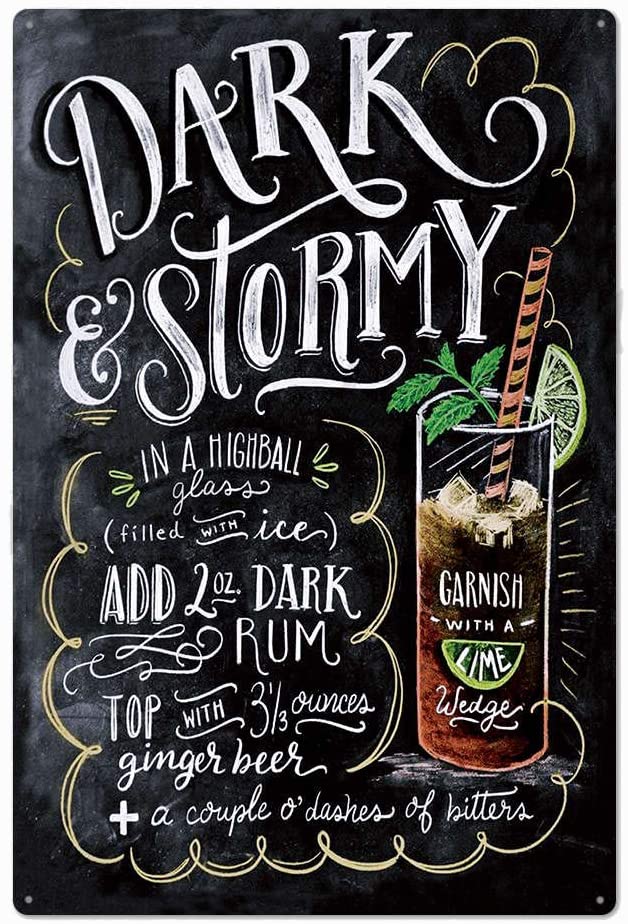 DARK
& STORMY
IN A HIGHBALL
glass
(filled WITH ice)
ADD 2 OZ. DARK
RUM
TOP WITH 3 1/3 ounces
ginger beer
+ a couple o'dashes of bitters
GARNISH
WITH A
LIME
Wedge